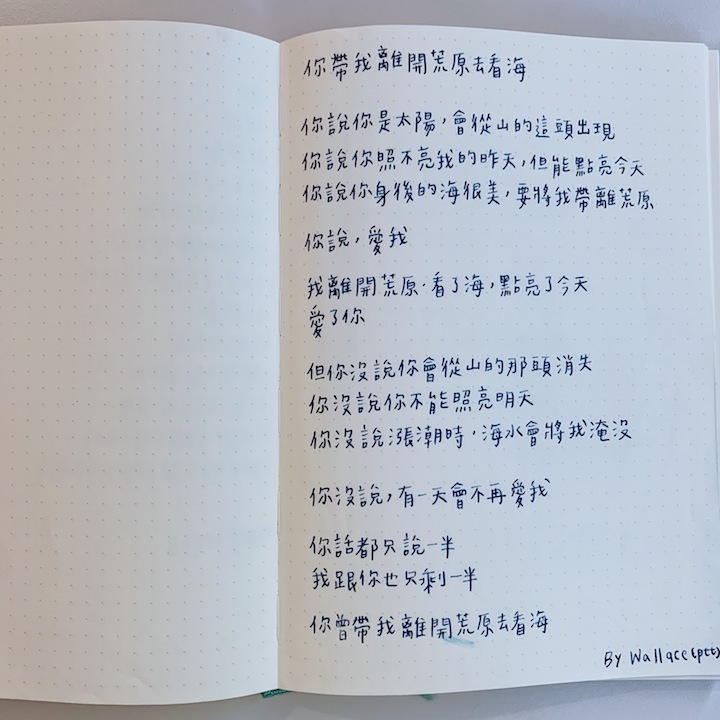 你帶我離開荒原去看海
你說你是太陽，會從山的這頭出現
你說你照不亮我的昨天，但能點亮今天
你說你身後的海很美，要將我帶離荒原
你說，愛我
我離開荒原，看了海，點亮了今天
愛了你
但你沒說你會從山的那頭消失
你沒說你不能照亮明天
你沒說漲潮時，海水會將我淹沒
你沒說，有一天會不再愛我
你話都只說一半
我跟你也只剩一半
你曾帶我離開荒原去看海
By Wallace(ptt)